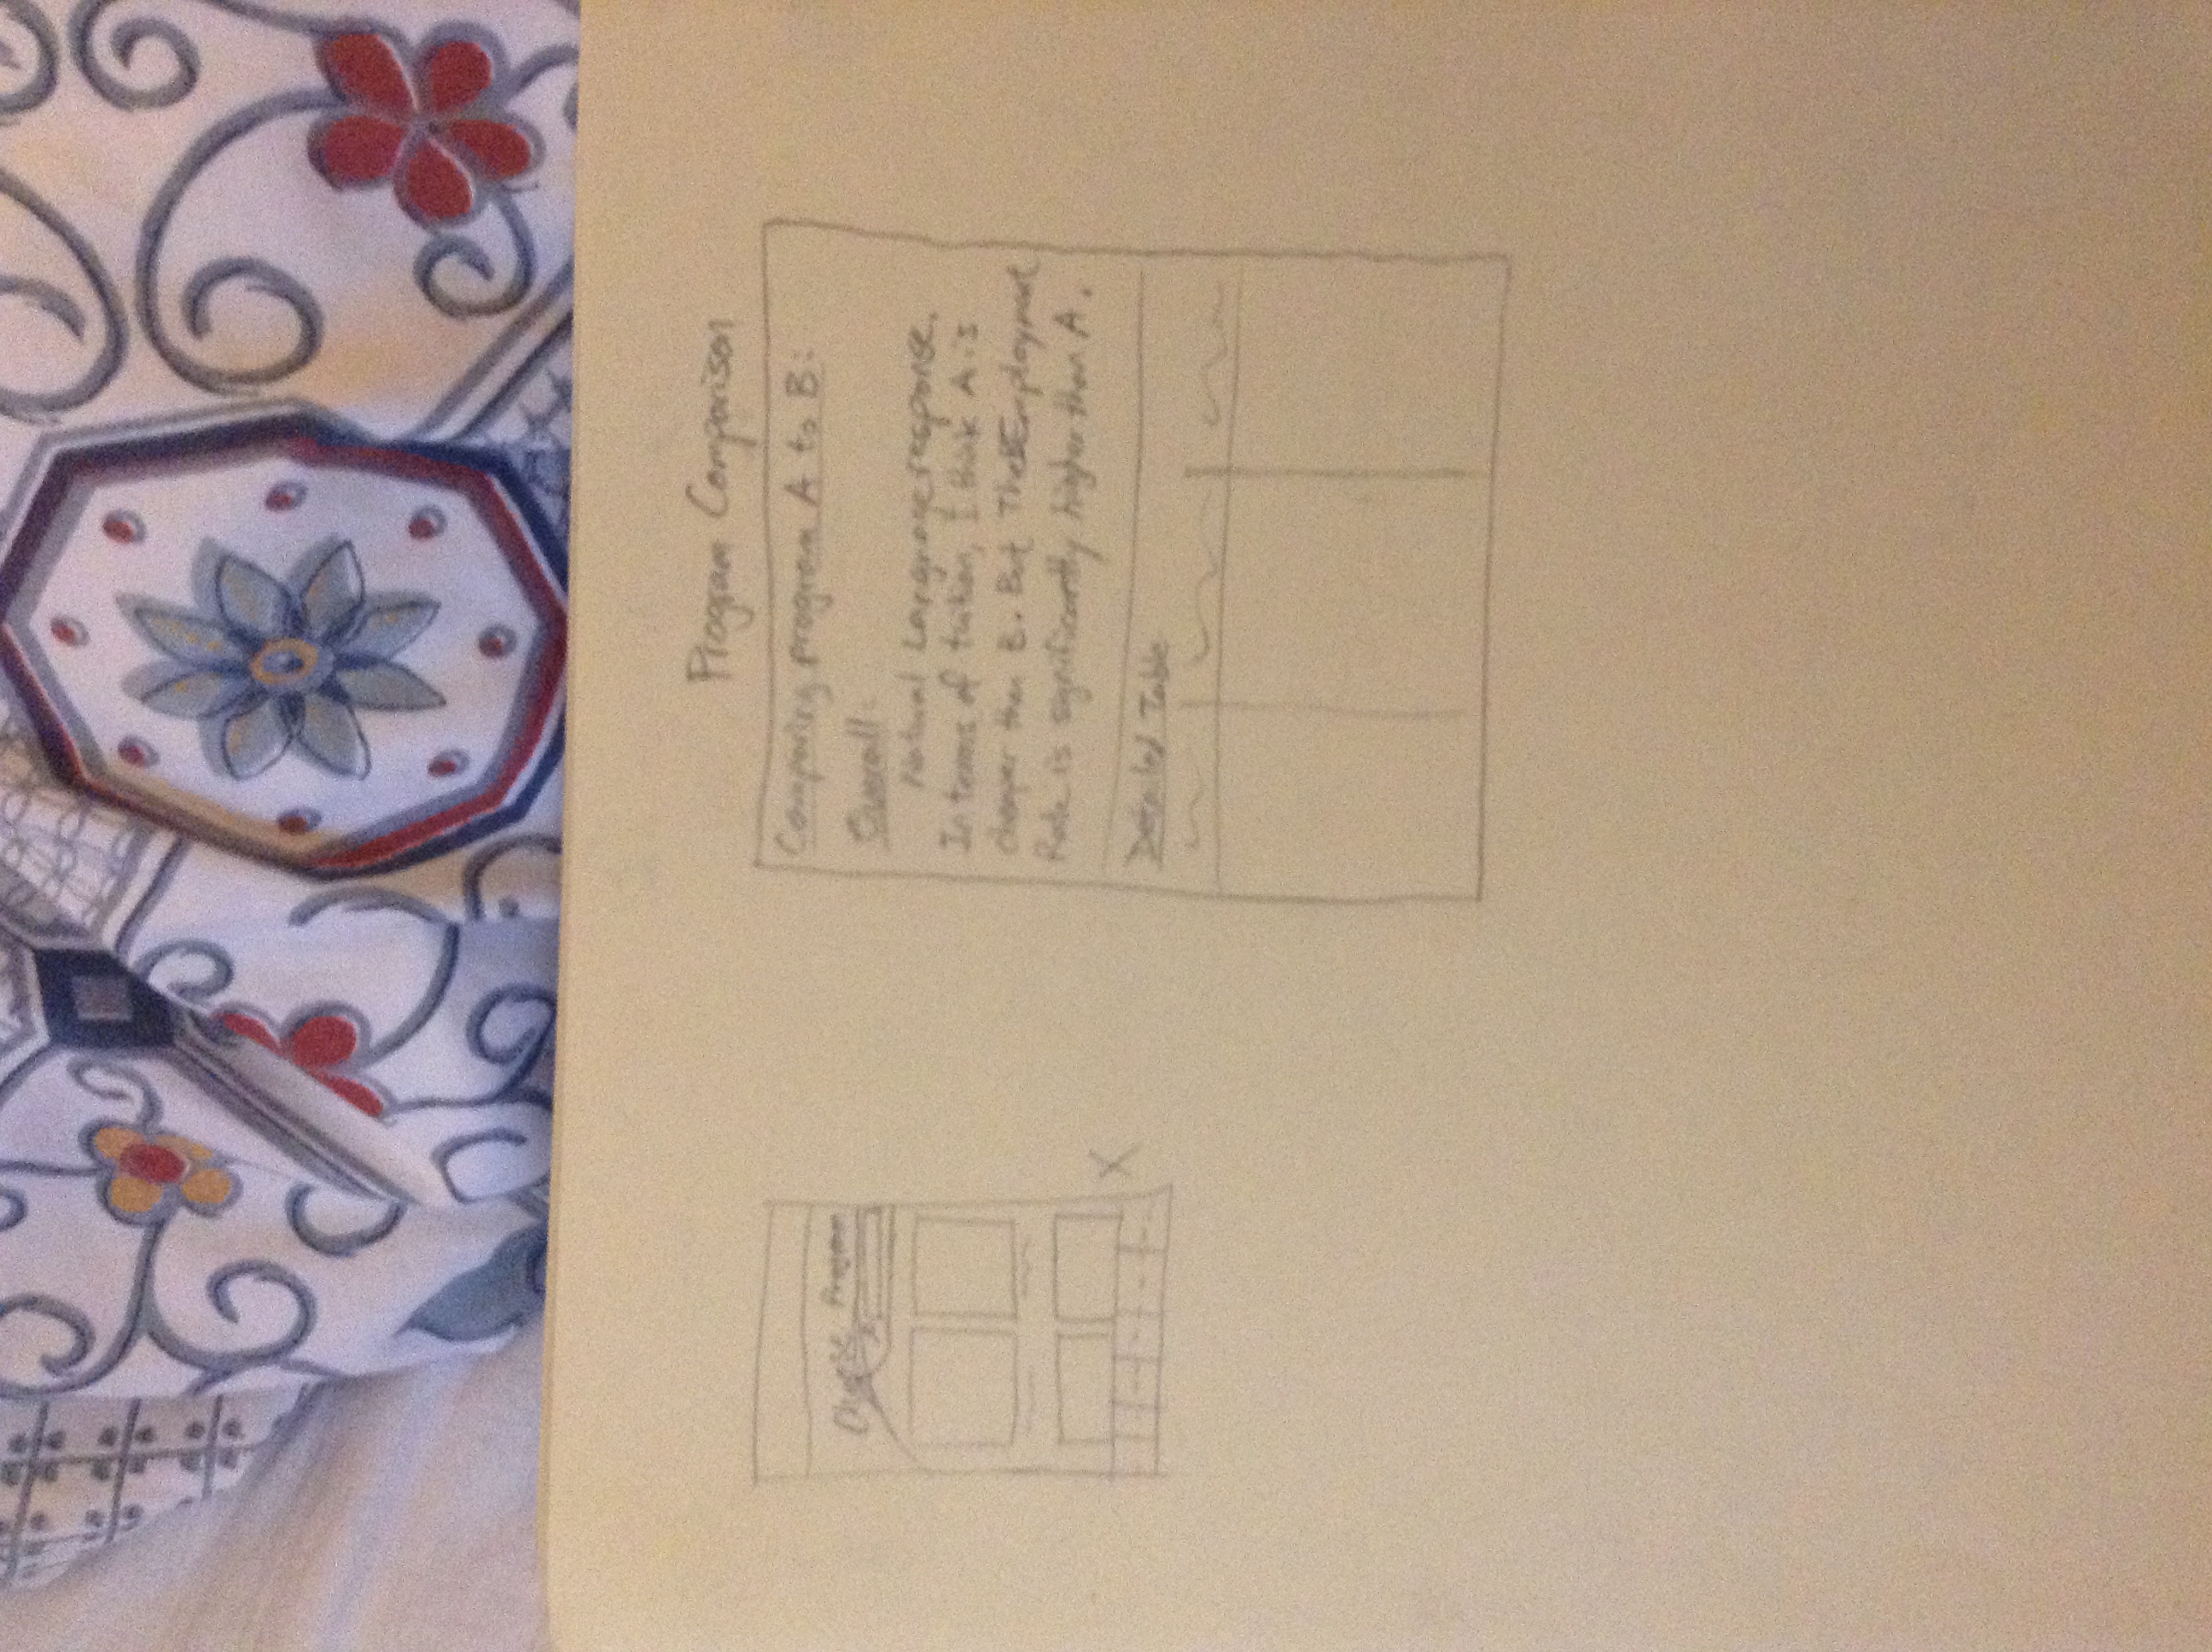 Program Comparison
Choose Program
Comparing program A to B:
Overall:
Natural Language response.
In terms of tuition, I think A is
cheaper than B. But The Employment
Rate is significantly higher than A.
Detailed Table
X